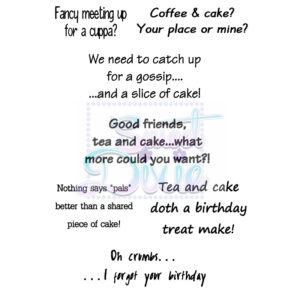 Fancy meeting up
for a cuppa?
Coffee & cake?
Your place or mine?
We need to catch up
for a gossip....
...and a slice of cake!
Good friends,
tea and cake...what
more could you want?!
Nothing says "pals"
better than a shared
piece of cake!
Tea and cake
doth a birthday
treat make!
Oh crumbs...
...I forgot your birthday
Sweet
Dixie